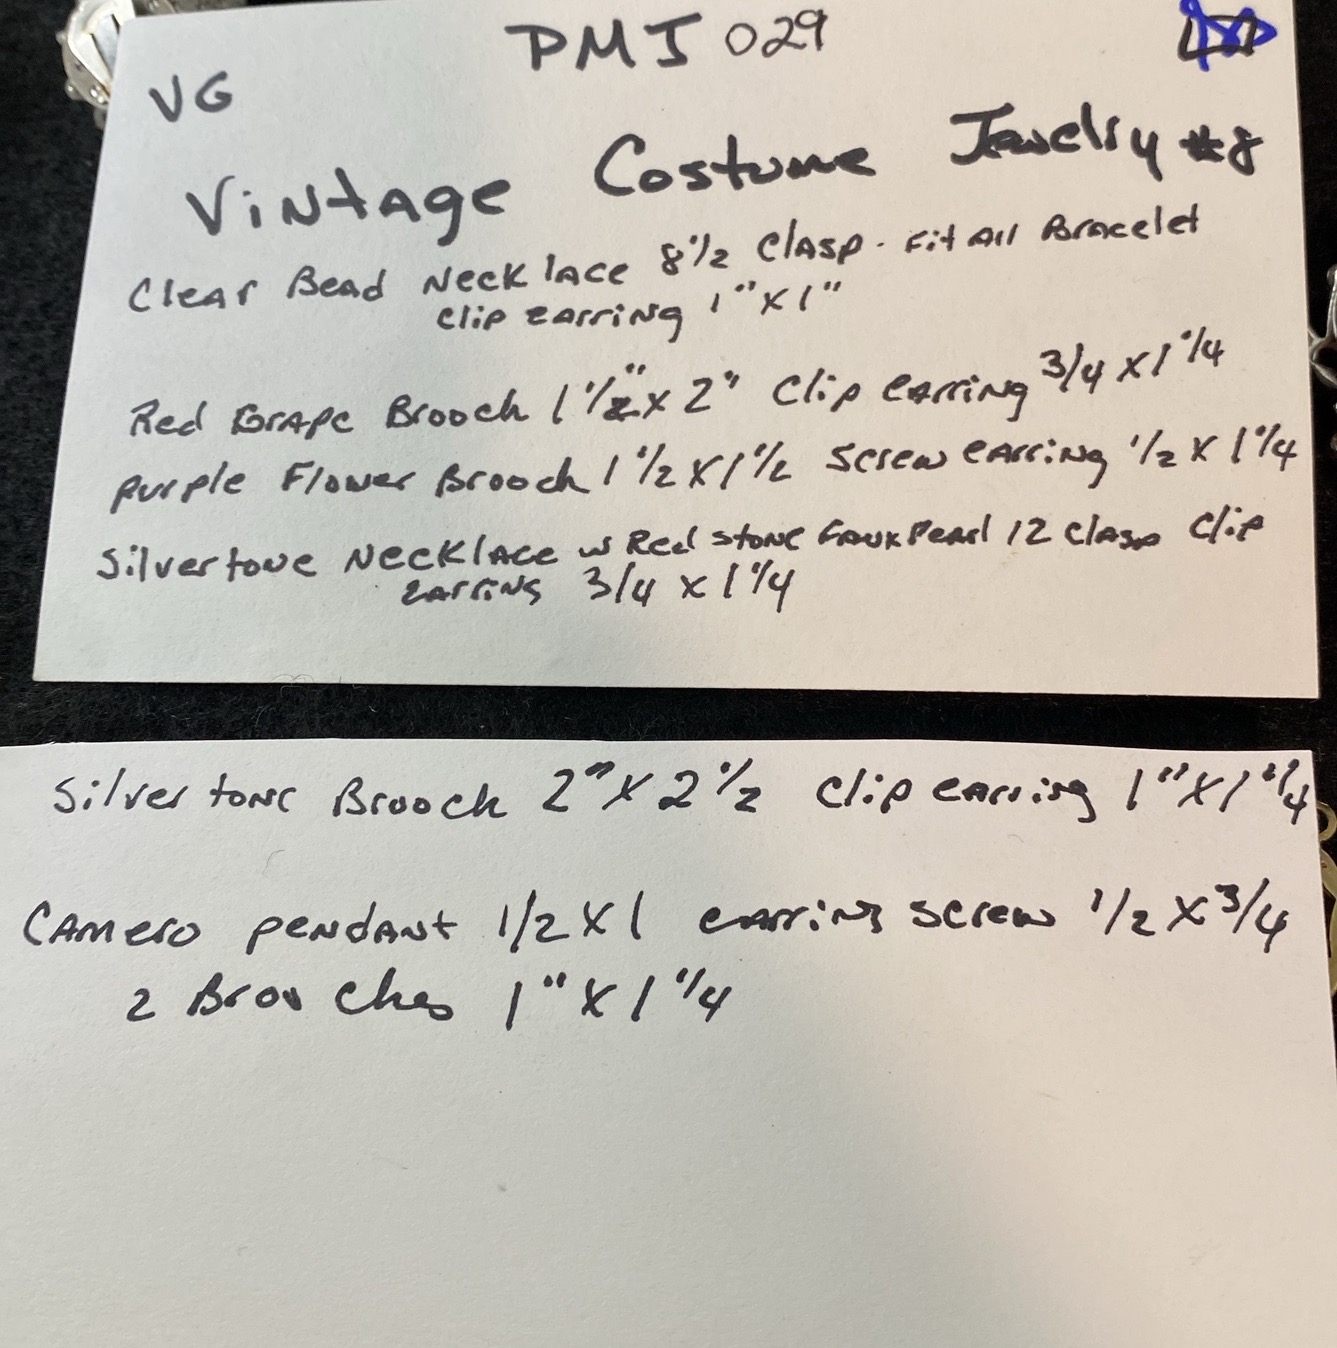 PMJ 029
VG
Vintage Costume Jewelry #8
Clear Bead Necklace 8 1/2 Clasp - Fit All Bracelet
Clip earring 1" x 1"
Red Grape Brooch 1 1/2" x 2" Clip earring 3/4 x 1 1/4
purple Flower Brooch 1 1/2 x 1 1/2 screw earring 1/2 x 1 1/4
Silvertone Necklace w Red stone Faux Pearl 12 Clasp Clip
earring 3/4 x 1 1/4
Silvertone Brooch 2" x 2 1/2 Clip earring 1" x 1 1/4
Camero pendant 1/2 x 1 earring screw 1/2 x 3/4
2 Brooches 1" x 1 1/4